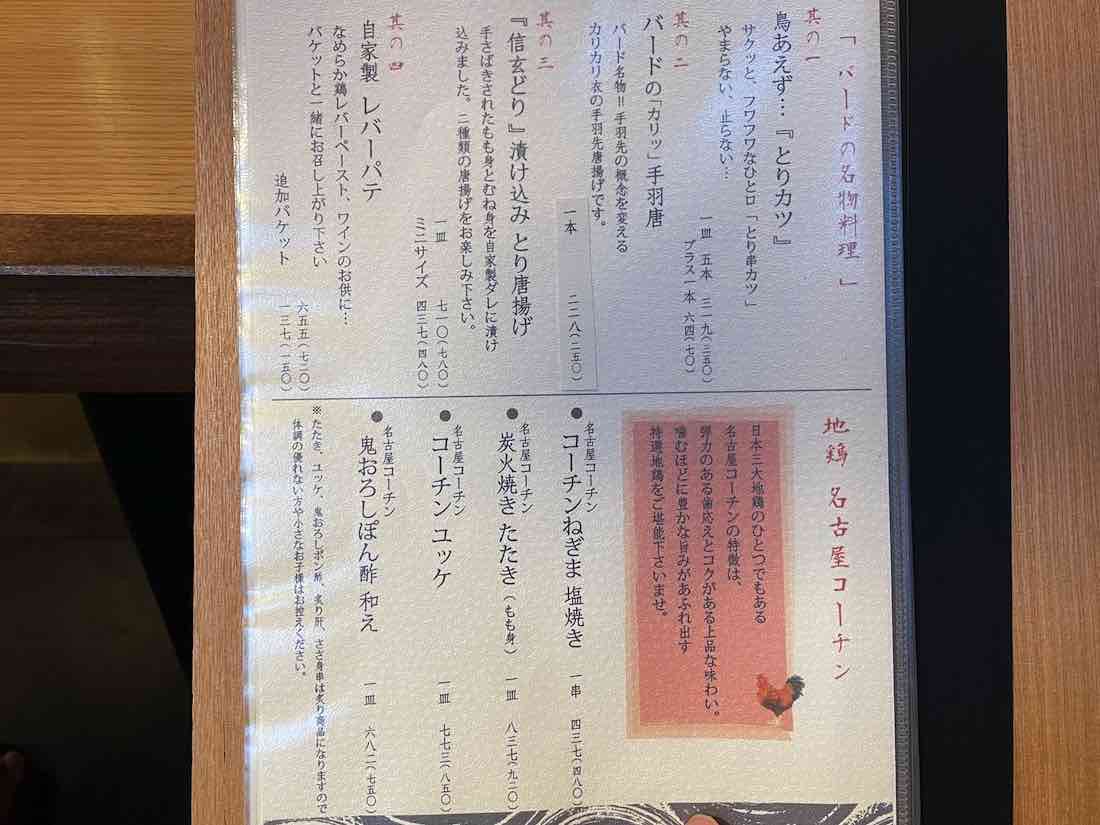 「バードの名物料理」
其の一
鳥あえず…『とりカツ』
サクッと、フワフワなひと口「とり串カツ」
やまらない、止らない…
一皿 五本 三一九(三五〇)
プラス一本 六四(七〇)
其の二
バードの「カリッ」手羽唐
バード名物!!手羽先の概念を変える
カリカリ衣の手羽先唐揚げです。
一本 二二八(二五〇)
其の三
『信玄どり』漬け込み とり唐揚げ
手さばきされたもも身とむね身を自家製ダレに漬け
込みました。二種類の唐揚げをお楽しみ下さい。
一皿 七一〇(七八〇)
ミニサイズ 四三七(四八〇)
其の四
自家製 レバーパテ
なめらか鶏レバーペースト、ワインのお供に…
バケットと一緒にお召し上がり下さい
六五五(七二〇)
追加バケット 一三七(一五〇)
地鶏 名古屋コーチン
日本三大地鶏のひとつでもある
名古屋コーチンの特徴は、
弾力のある歯応えとコクがある上品な味わい。
噛むほどに豊かな旨みがあふれ出す
特選地鶏をご堪能下さいませ。
名古屋コーチン
● コーチンねぎま 塩焼き 一串 四三七(四八〇)
名古屋コーチン
● 炭火焼き たたき(もも身) 一皿 八三七(九二〇)
名古屋コーチン
● コーチン ユッケ 一皿 七七三(八五〇)
名古屋コーチン
● 鬼おろしぽん酢 和え 一皿 六八二(七五〇)
※たたき、ユッケ、鬼おろしポン酢、炙り肝、ささ身串は炙り商品になりますので
体調の優れない方や小さなお子様はお控えください。